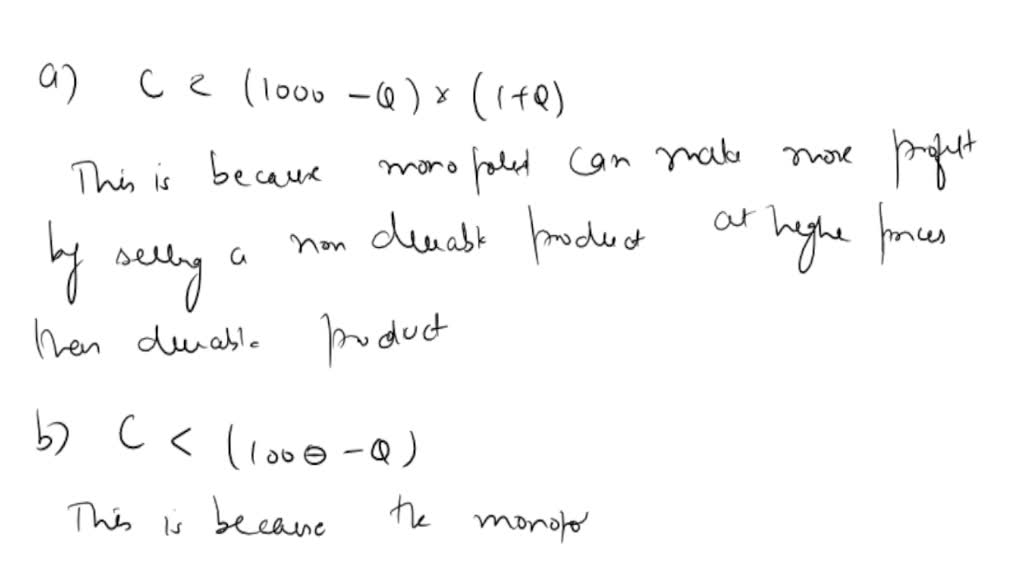 a) C < (1000 - Q) × (1+Q)
This is because monopolist can make more profit
by selling a non durable product at higher prices
than durable product
b) C < (1000 - Q)
This is because the monopo